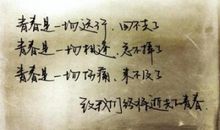 青春是一场远行，回不去了
青春是一场相逢，忘不掉了
青春是一场伤痛，来不及了
致我们终将逝去了青春。